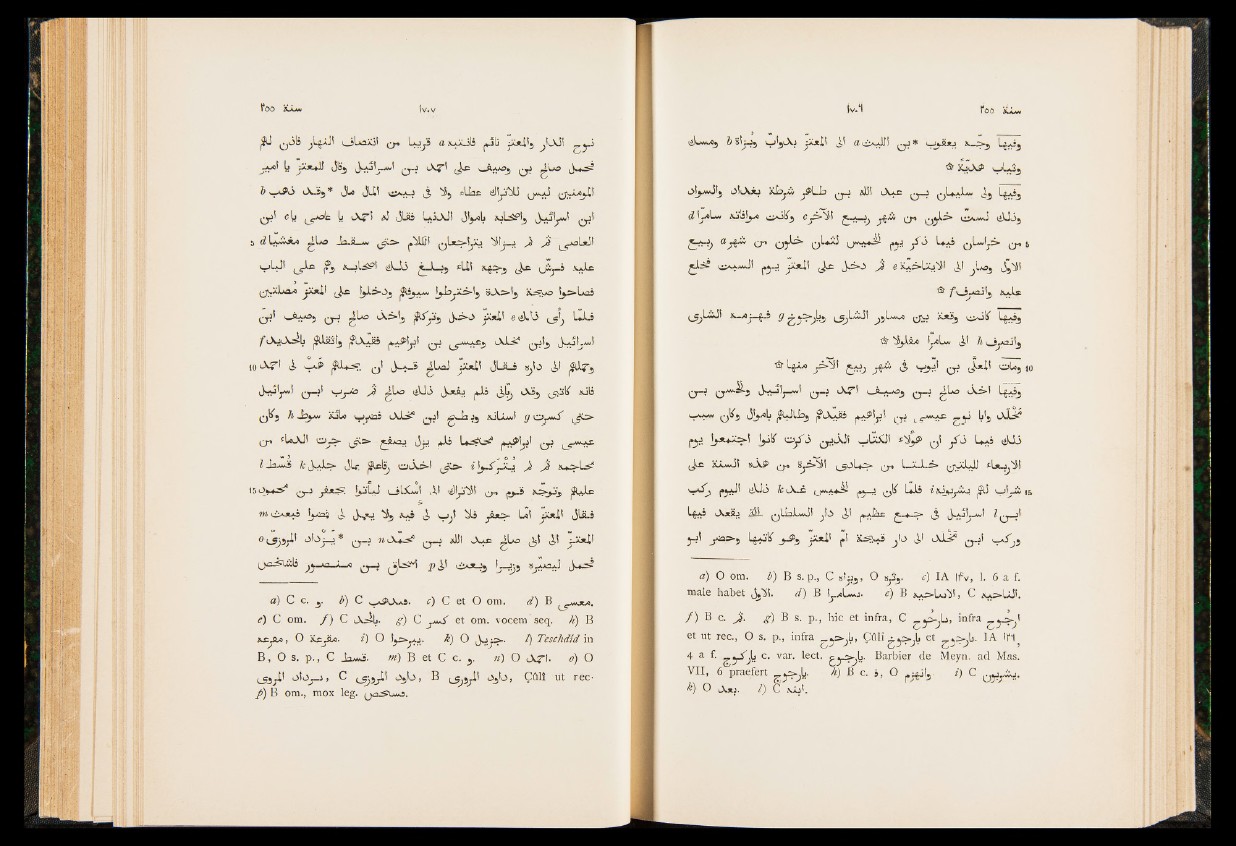 سنة ٢٥٥ ١٧٠٦
وفيها وجّه يعقوب *بن الليث a الى المعتزّ بدوابّ وبزاة b ومسك
وثياب هديّة ۞
وفيها ولى سليمان بن عبد الله بن طاهر شرطة بغداد والسواد
وذلك لستّ خلون من شهر ربيع الآخر c وكانت موافاته سامرّا d
5 من خراسان فيها ذكر يوم الخميس لثمان خلون من شهر a ربيع
الأوّل وصار الى الايتاخيّة e ثم دخل على المعتزّ يوم السبت فخلع
عليه وانصرف f ۞
وفيها كانت وقعة بين مساور الشارى ويارجوخ g فهزمه الشارى
وانصرف h الى سامرّا مفلولا ۞
10 ومات المعلّى بن أيّوب فى شهر ربيع الآخر منها ۞
وفيها اخذ صالح بن وصيف احمد بن اسرائيل والحسن بن
مخلّد وابا نوح عيسى بن ابرهيم فقيّدهم وطالبهم باموال وكان سبب
ذلك فيما ذكر ان هؤلاء الكتّاب الذين ذكرت كانوا اجتمعوا يوم
الاربعاء لليلتين خلتا من جمادى الآخرة من هذه السنة على
15 شراب لهم يشربونه i فلمّا كان يوم الخميس غد k ذلك اليوم ركب
ابن l اسرائيل فى جمع عظيم الى دار السلطان التى يقعد فيها
وركب ابن مخلّد الى دار قبيحة أمّ المعتزّ وهو كاتبها وحضر ابو
a) O om. b) B s. p., C وبزاه, O وبزة. c) IA ١٤٧, l. 6 a f.
male habet الاول. d) B سامرا. e) B الاساحيه, C الناحيه.
f) B c. ثم. g) B s. p., hic et infra, C يارجوح, infra ارجوج
et ut rec., O s. p., infra يارجوج, Çûlî يارجوخ et يارجوج. IA ١٣٦,
4 a f. ياركوج c. var. lect. يارجوح. Barbier de Meyn. ad Mas.
VII, 6 praefert يارجوج. h) B c. ف, O وانهزم i) C يشربون.
k) O بعد. l) C ابنه.
سنة ٢٥٥ ١٧٠٧
نوح الدار والمعتزّ نائم فانتبه a قريبا من انتصاف النهار فاذن لهم
فحمل صالح بن وصيف على احمد بن اسرائيل وقال للمعتزّ يا امير
المؤمنين ليس للاتراك عطاء ولا فى بيت المال مال *وقد ذهب b
ابن اسرائيل واصحابه باموال الدنيا فقال له احمد يا عاصى يا c ابن
5 العاصى ثم لم يزالا يتراجعان الكلام حتى سقط صالح مغشيّا d
عليه فرشّ على وجهه الماء وبلغ ذلك اصحابه وهم على الباب
فصاحوا صيحة واحدة واخترطوا سيوفهم ودخلوا على المعتزّ مصلتين
فلمّا رأى ذلك e المعتزّ دخل وتركهم واخذ صالح بن وصيف ابن
اسرائيل وابن مخلّد وعيسى بن ابرهيم فقيّدهم واثقلهم بالحديد f
10 وحملهم الى داره فقال المعتزّ لصالح قبل ان يحملهم هب لى احمد
فانه كاتبى وقد ربّانى فلم يفعل ذلك صالح ثم ضرب ابن اسرائيل
حتى كسرت g اسنانه وبطح ابن مخلد فضرب مائة سوط h وكان
عيسى بن ابرهيم محتجما فلم يزل يصفع حتى جرت الدماء من
محاجمه ثم لم يتركوا i حتى اخذت رقاعهم بمال جليل k قسّط l
15 عليهم وتوجّه قوم من الاتراك الى اسكاف ليأتوا بجعفر بن محمود
فقال المعتزّ امّا جعفر فلا ارب لى فيه ولا يعمل لى فمضوا فبعث m
المعتزّ الى ابى صالح عبد الله بن محمّد n بن *يزداد المروزى o
فحمل ليصيّره وزيرا وبعث الى p اسحاق بن منصور فاشخص
a) C c. و. b) C فذهب. c) C et O om. d) B
e) C om. f) C بالحد. g) C كسر et om. vocem seq. h) B
مقرعه, O مقرعة. i) O يبرحوا. k) O جزيل. l) Teschdîd in
B, O s. p., C فسط. m) B et C c. و. n) O احمد. o) O
يرداد المروى, C داود المروزى, B داود المروزى, Çûlî ut rec.
p) B om., mox leg. فشخص.